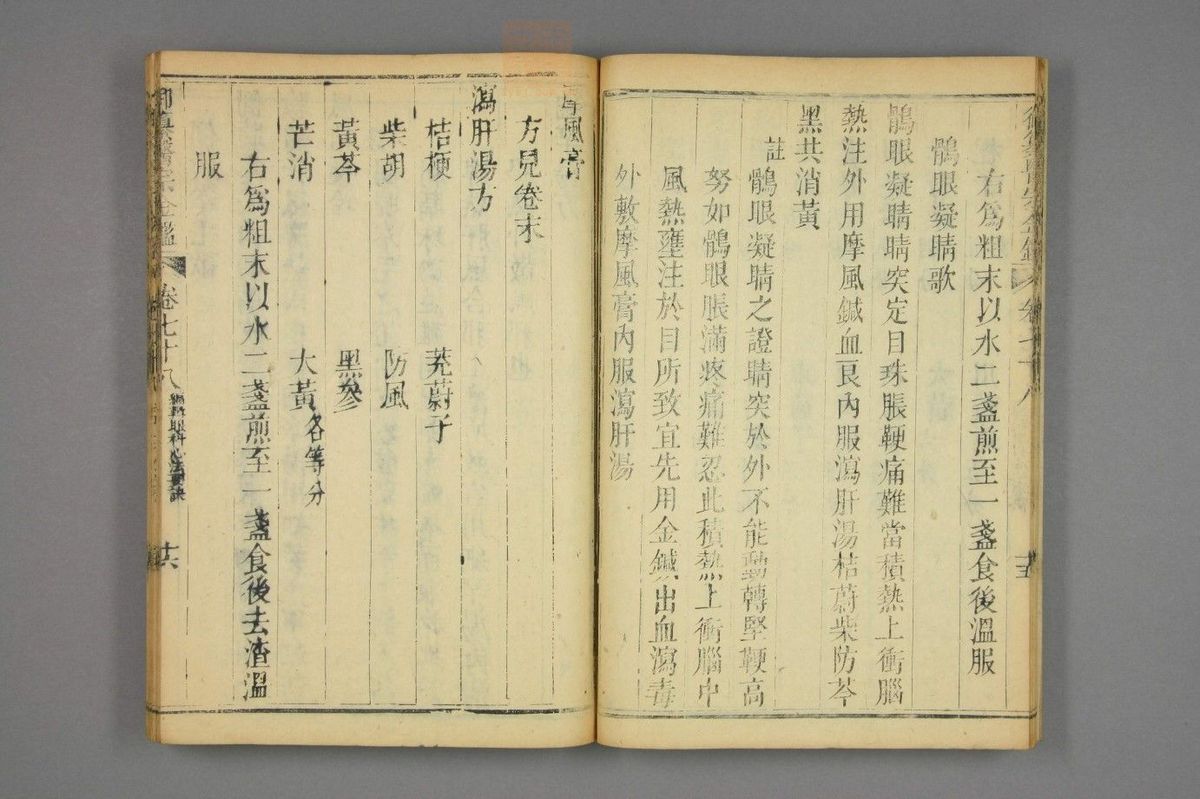 右爲粗末以水二盞煎至一盞食後溫服
鶻眼凝睛歌
鶻眼凝睛睛突定目珠脹鞕痛難當積熱上衝腦
熱注外用摩風鍼血良內服瀉肝湯桔蔚柴防芩
黑共消黃
註鶻眼凝睛之證睛突於外不能動轉堅鞕高
努如鶻眼脹滿疼痛難忍此積熱上衝腦中
風熱壅注於目所致宜先用金鍼出血瀉毒
外敷摩風膏內服瀉肝湯
摩風膏
方見卷末
瀉肝湯方
桔梗 茺蔚子
柴胡 防風
黃芩 黑參
芒消 大黃各等分
右爲粗末以水二盞煎至一盞食後去渣溫
服
御纂醫宗金鑑 卷七十八 編輯眼科心法要訣 十六